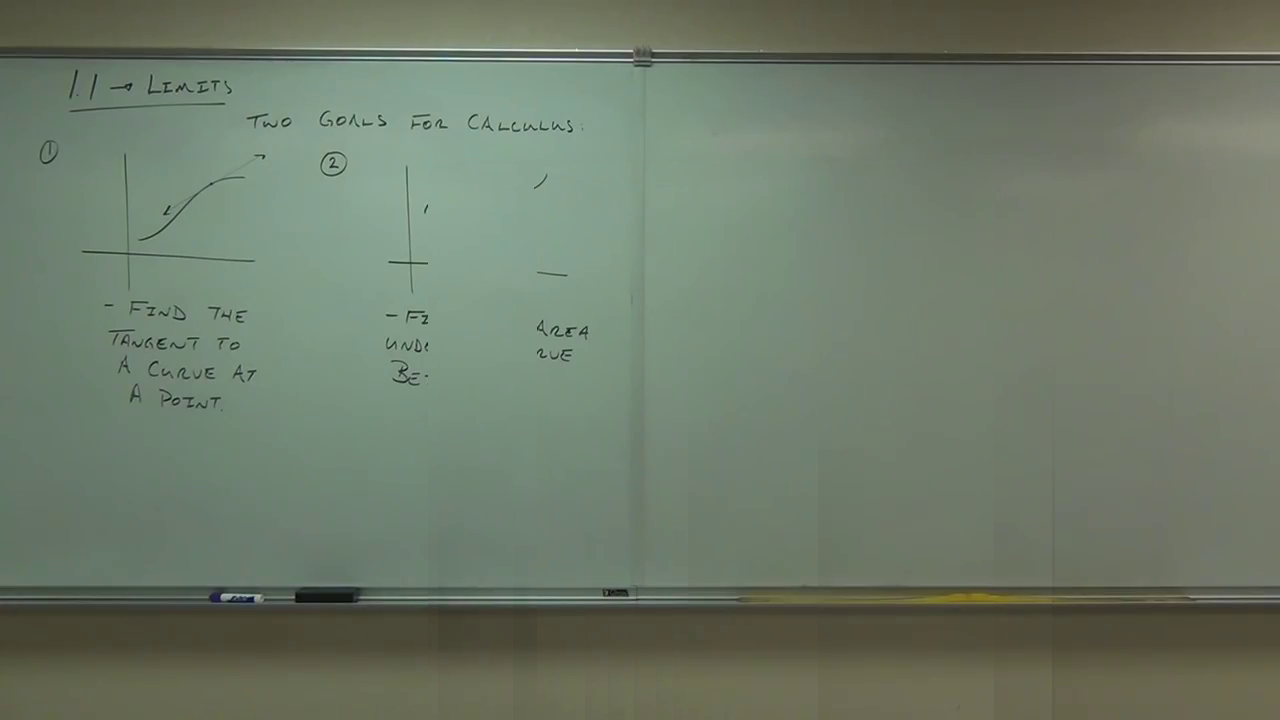 1.1 → LIMITS
TWO GOALS FOR CALCULUS:
①
- FIND THE
TANGENT TO
A CURVE AT
A POINT.
②
- FI AREA
UND RVE
BE